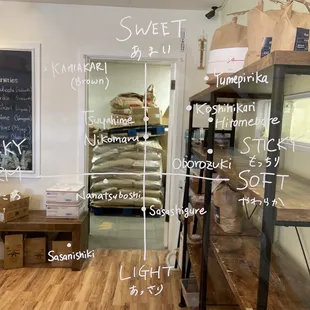 SWEET
あまい
KAMIAKARI
(Brown)
Yumepirika
Koshihikari
Tsuyahime
Hitomebore
Nikomaru
STICKY
もっちり
Oborozuki
SOFT
やわらか
Nanatsuboshi
Sasashigure
Sasanishiki
LIGHT
あっさり